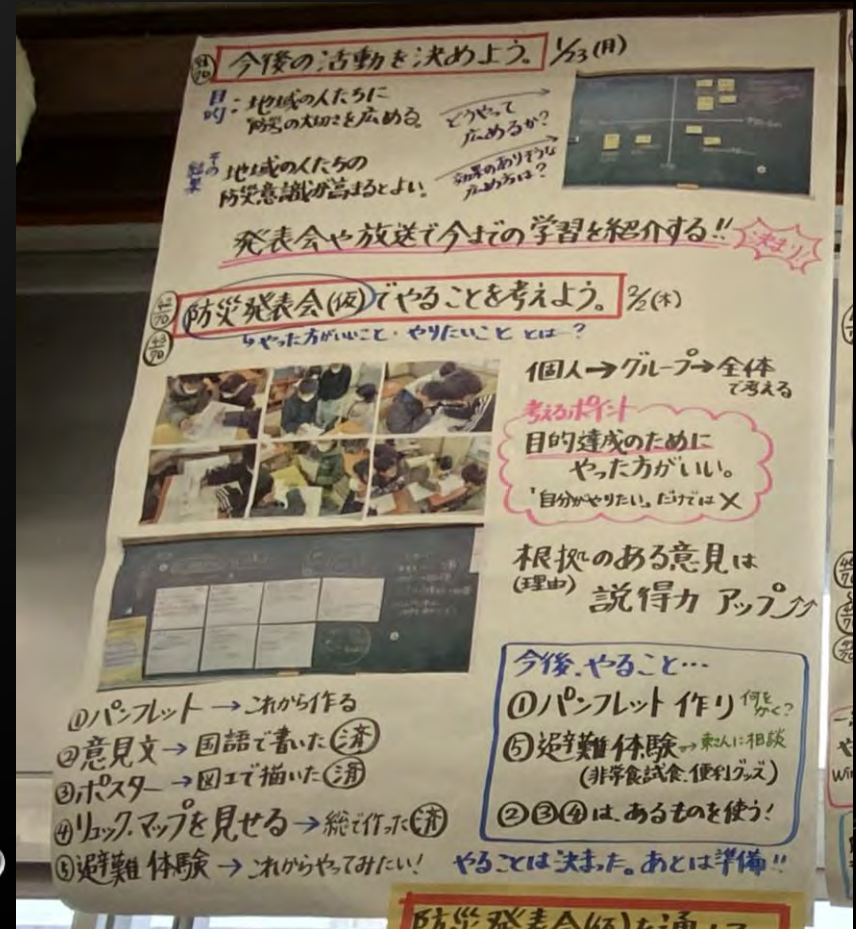 今後の活動を決めよう。 1/23(月)
目的:地域の人たちに
防災の大切さを広める。
どうやって
広めるか?
その結果 地域の人たちの
防災意識が高まるとよい。
効果のありそうな
広め方は?
発表会や放送で今までの学習を紹介する!!
決まり!
42/70
43/70
防災発表会(仮)でやることを考えよう。 2/2(木)
↳やった方がいいこと・やりたいこと とは?
個人→グループ→全体
で考える
考えるポイント
目的達成のために
やった方がいい。
「自分がやりたい。」だけでは×
根拠のある意見は
(理由)
説得力 アップ↗↗
①パンフレット→これから作る
②意見文→国語で書いた(済)
③ポスター→図工で描いた(済)
④リュック、マップを見せる→総で作った(済)
⑤避難体験→これからやってみたい!
今後、やること…
①パンフレット作り 何をかく?
⑤避難体験→東さんに相談
(非常食試食、便利グッズ)
②③④は、あるものを使う!
やることは決まった。あとは準備!!
防災発表会(仮)を通して